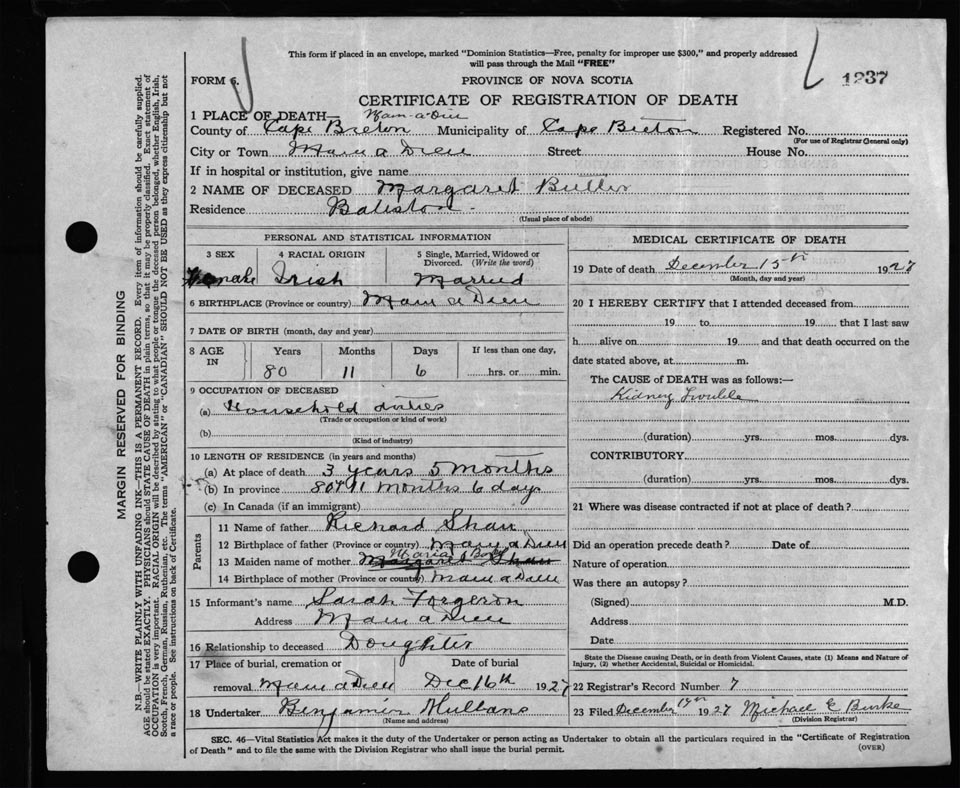 This form if placed in an envelope, marked "Dominion Statistics—Free, penalty for improper use $300," and properly addressed
will pass through the Mail "FREE"
FORM 6.
PROVINCE OF NOVA SCOTIA
1237
CERTIFICATE OF REGISTRATION OF DEATH
1 PLACE OF DEATH— Mam-a-Dieu
County of Cape Breton Municipality of Cape Breton Registered No.
(For use of Registrar General only)
City or Town Main a Dieu Street House No.
If in hospital or institution, give name
2 NAME OF DECEASED Margaret Butler
Residence Baliston
(Usual place of abode)
PERSONAL AND STATISTICAL INFORMATION
3 SEX 4 RACIAL ORIGIN 5 Single, Married, Widowed or Divorced. (Write the word)
Female Irish Married
6 BIRTHPLACE (Province or country) Main a Dieu
7 DATE OF BIRTH (month, day and year)
8 AGE IN Years Months Days If less than one day,
80 11 6 hrs. or min.
9 OCCUPATION OF DECEASED
(a) Household duties
(Trade or occupation or kind of work)
(b)
(Kind of industry)
10 LENGTH OF RESIDENCE (in years and months)
(a) At place of death 3 years 5 months
(b) In province 80 11 months 6 days
(c) In Canada (if an immigrant)
Parents
11 Name of father Richard Shaw
12 Birthplace of father (Province or country) Main a Dieu
13 Maiden name of mother Maria
14 Birthplace of mother (Province or country) Main a Dieu
15 Informant's name Sarah Forgeron
Address Main a Dieu
16 Relationship to deceased Doughter
17 Place of burial, cremation or Date of burial
removal Main a Dieu Dec 16th 1927
18 Undertaker Benjamin Mullans
(Name and address)
MEDICAL CERTIFICATE OF DEATH
19 Date of death December 15th 1927
(Month, day and year)
20 I HEREBY CERTIFY that I attended deceased from
19 to 19 that I last saw
h alive on 19 and that death occurred on the
date stated above, at m.
The CAUSE of DEATH was as follows:—
Kidney Trouble
(duration) yrs. mos. dys.
CONTRIBUTORY
(duration) yrs. mos. dys.
21 Where was disease contracted if not at place of death?
Did an operation precede death? Date of
Nature of operation
Was there an autopsy?
(Signed) M.D.
Address
Date
State the Disease causing Death, or in death from Violent Causes, state (1) Means and Nature of
Injury, (2) whether Accidental, Suicidal or Homicidal.
22 Registrar's Record Number 7
23 Filed December 17th 1927 Michael E Burke
(Division Registrar)
SEC. 46—Vital Statistics Act makes it the duty of the Undertaker or person acting as Undertaker to obtain all the particulars required in the "Certificate of Registration
of Death" and to file the same with the Division Registrar who shall issue the burial permit.
(OVER)
MARGIN RESERVED FOR BINDING
N.B.—WRITE PLAINLY WITH UNFADING INK—THIS IS A PERMANENT RECORD. Every item of information should be carefully supplied.
AGE should be stated EXACTLY. PHYSICIANS should STATE CAUSE OF DEATH in plain terms, so that it may be properly classified. Exact statement of
OCCUPATION is very important. RACIAL ORIGIN will be described by stating to what people or tongue the deceased person belonged, whether English, Irish,
Scotch, French, German, Russian, Ruthenian, etc. The terms "AMERICAN" or "CANADIAN" SHOULD NOT BE USED as they express citizenship but not
a race or people. See instructions on back of Certificate.